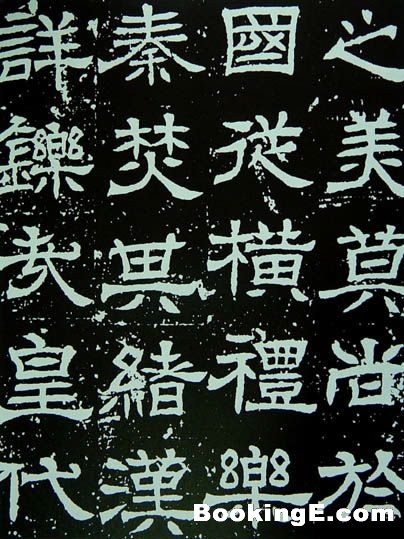 之美莫尚於
國從橫禮樂
秦焚其緒漢
詳鑠矣皇代
BookingE.com